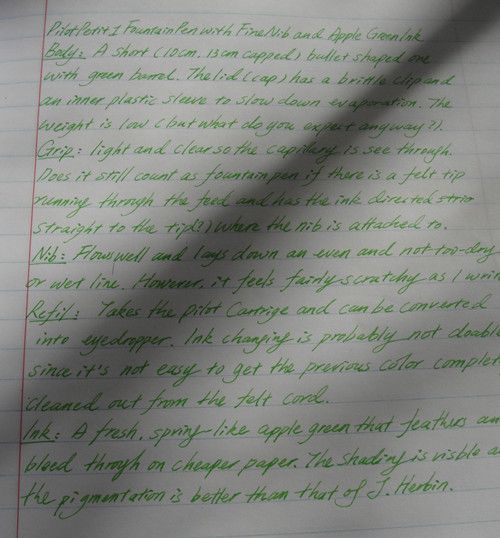 Pilot Petit 1 Fountain Pen with Fine Nib and Apple Green Ink
Body: A short (10cm, 13cm capped) bullet shaped one
with green barrel. The lid (cap) has a brittle clip and
an inner plastic sleeve to slow down evaporation. The
weight is low (but what do you expect anyway?).
Grip: light and clear so the capilary is see through.
Does it still count as fountain pen if there is a felt tip
running through the feed and has the ink directed
straight to the tip?) where the nib is attached to.
Nib: Flows well and lays down an even and not too-dry
or wet line. However, it feels fairly scratchy as I writ
Refil: Takes the pilot Cartrige and can be converted
into eyedropper. Ink changing is probably not doable
since it's not easy to get the previous color complet
cleaned out from the felt cord.
Ink: A fresh, spring-like apple green that feathers an
bleed throgh on cheaper paper. The shading is visble a
the pigmentation is better than that of J. Herbin.